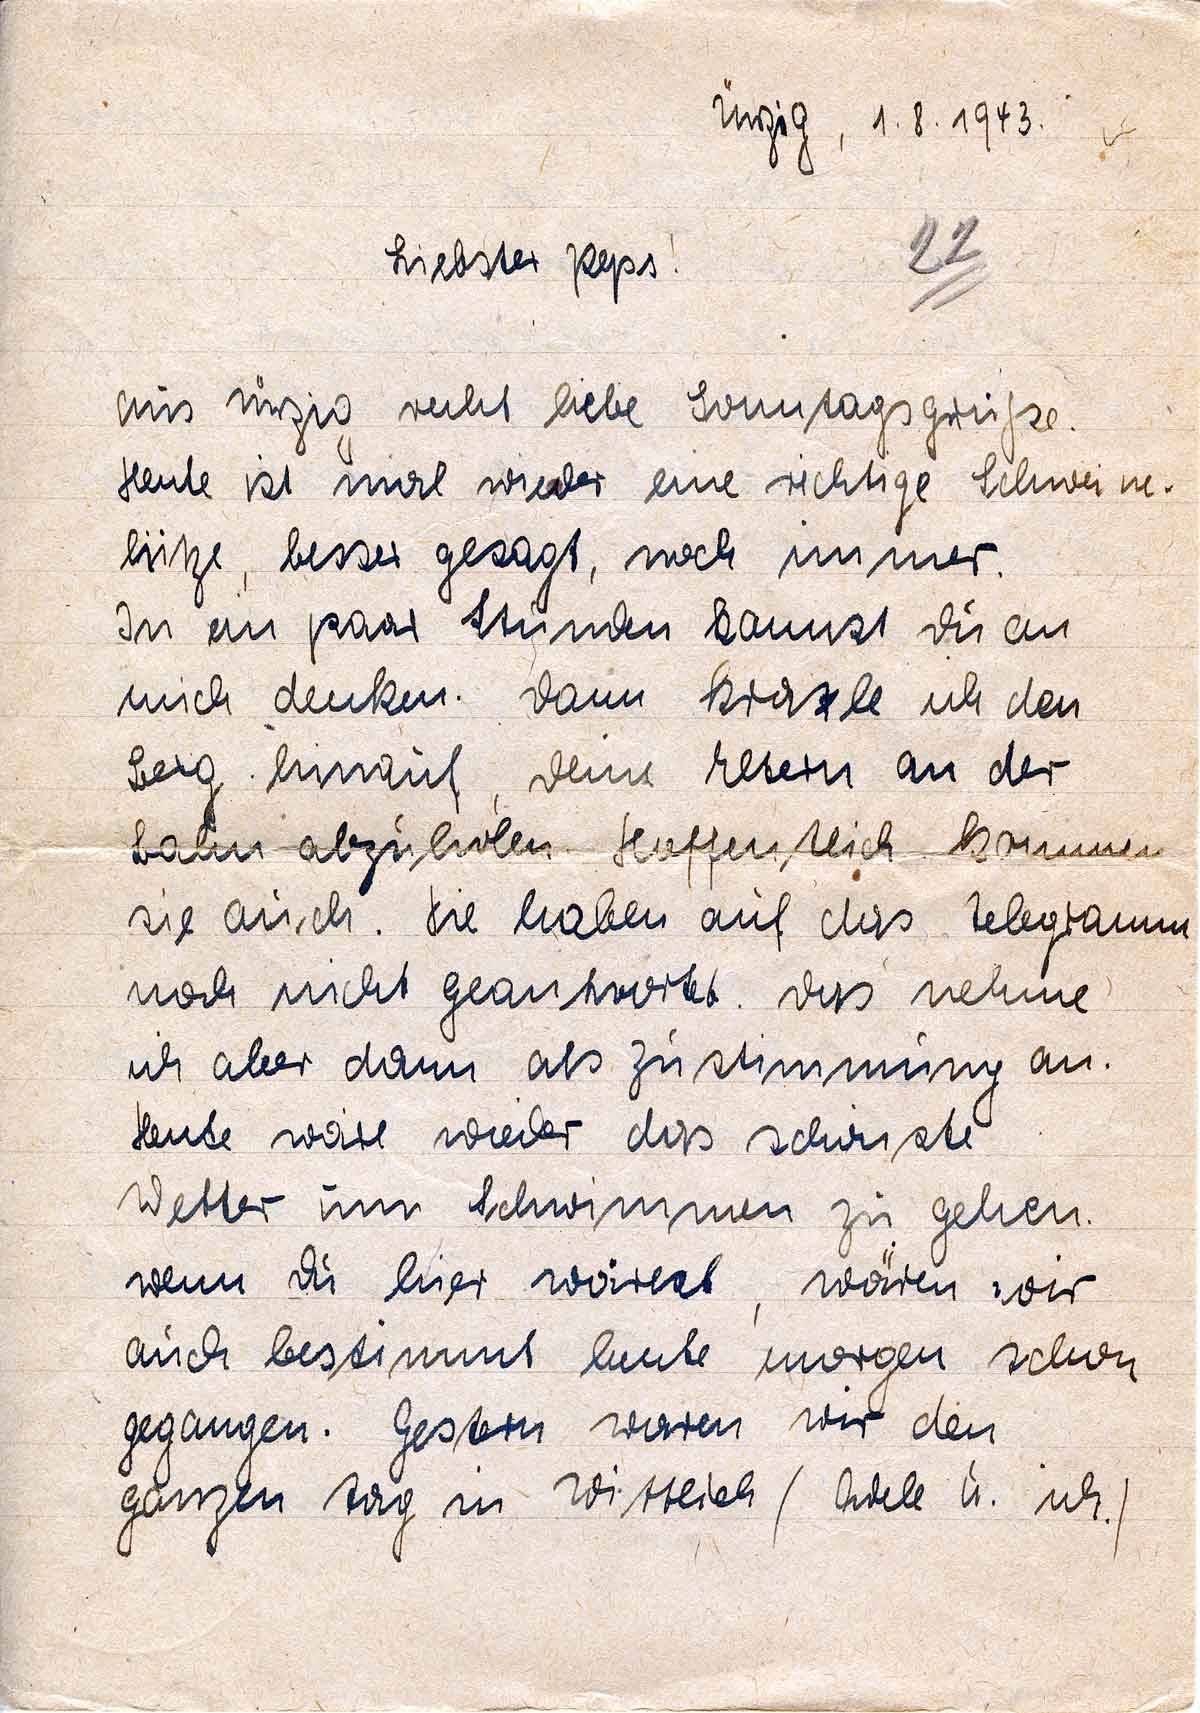 Ürzig, 1.8.1943.
22
Liebster Peps!
aus Ürzig recht liebe Sonntagsgrüße.
Heute ist mal wieder eine richtige Schweine-
hitze, besser gesagt, noch immer.
In ein paar Stunden kannst Du an
mich denken. Dann kraxle ich den
Berg hinauf, Deine Eltern an der
Bahn abzuholen. Hoffentlich kommen
sie auch. Sie haben auf das Telegramm
noch nicht geantwortet. Das nehme
ich aber dann als Zustimmung an.
Heute wäre wieder das schönste
Wetter um Schwimmen zu gehen.
Wenn Du hier wärest, wären wir
auch bestimmt heute morgen schon
gegangen. Gestern waren wir den
ganzen Tag in Wittlich (Adele u. ich.)